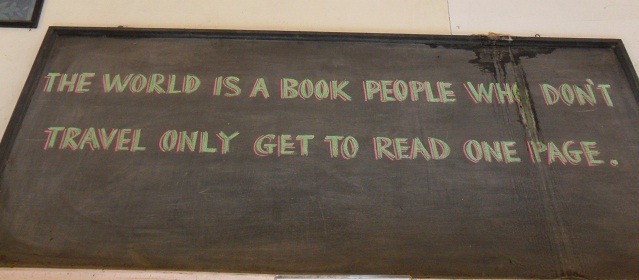 THE WORLD IS A BOOK PEOPLE WHO DON'T
TRAVEL ONLY GET TO READ ONE PAGE.